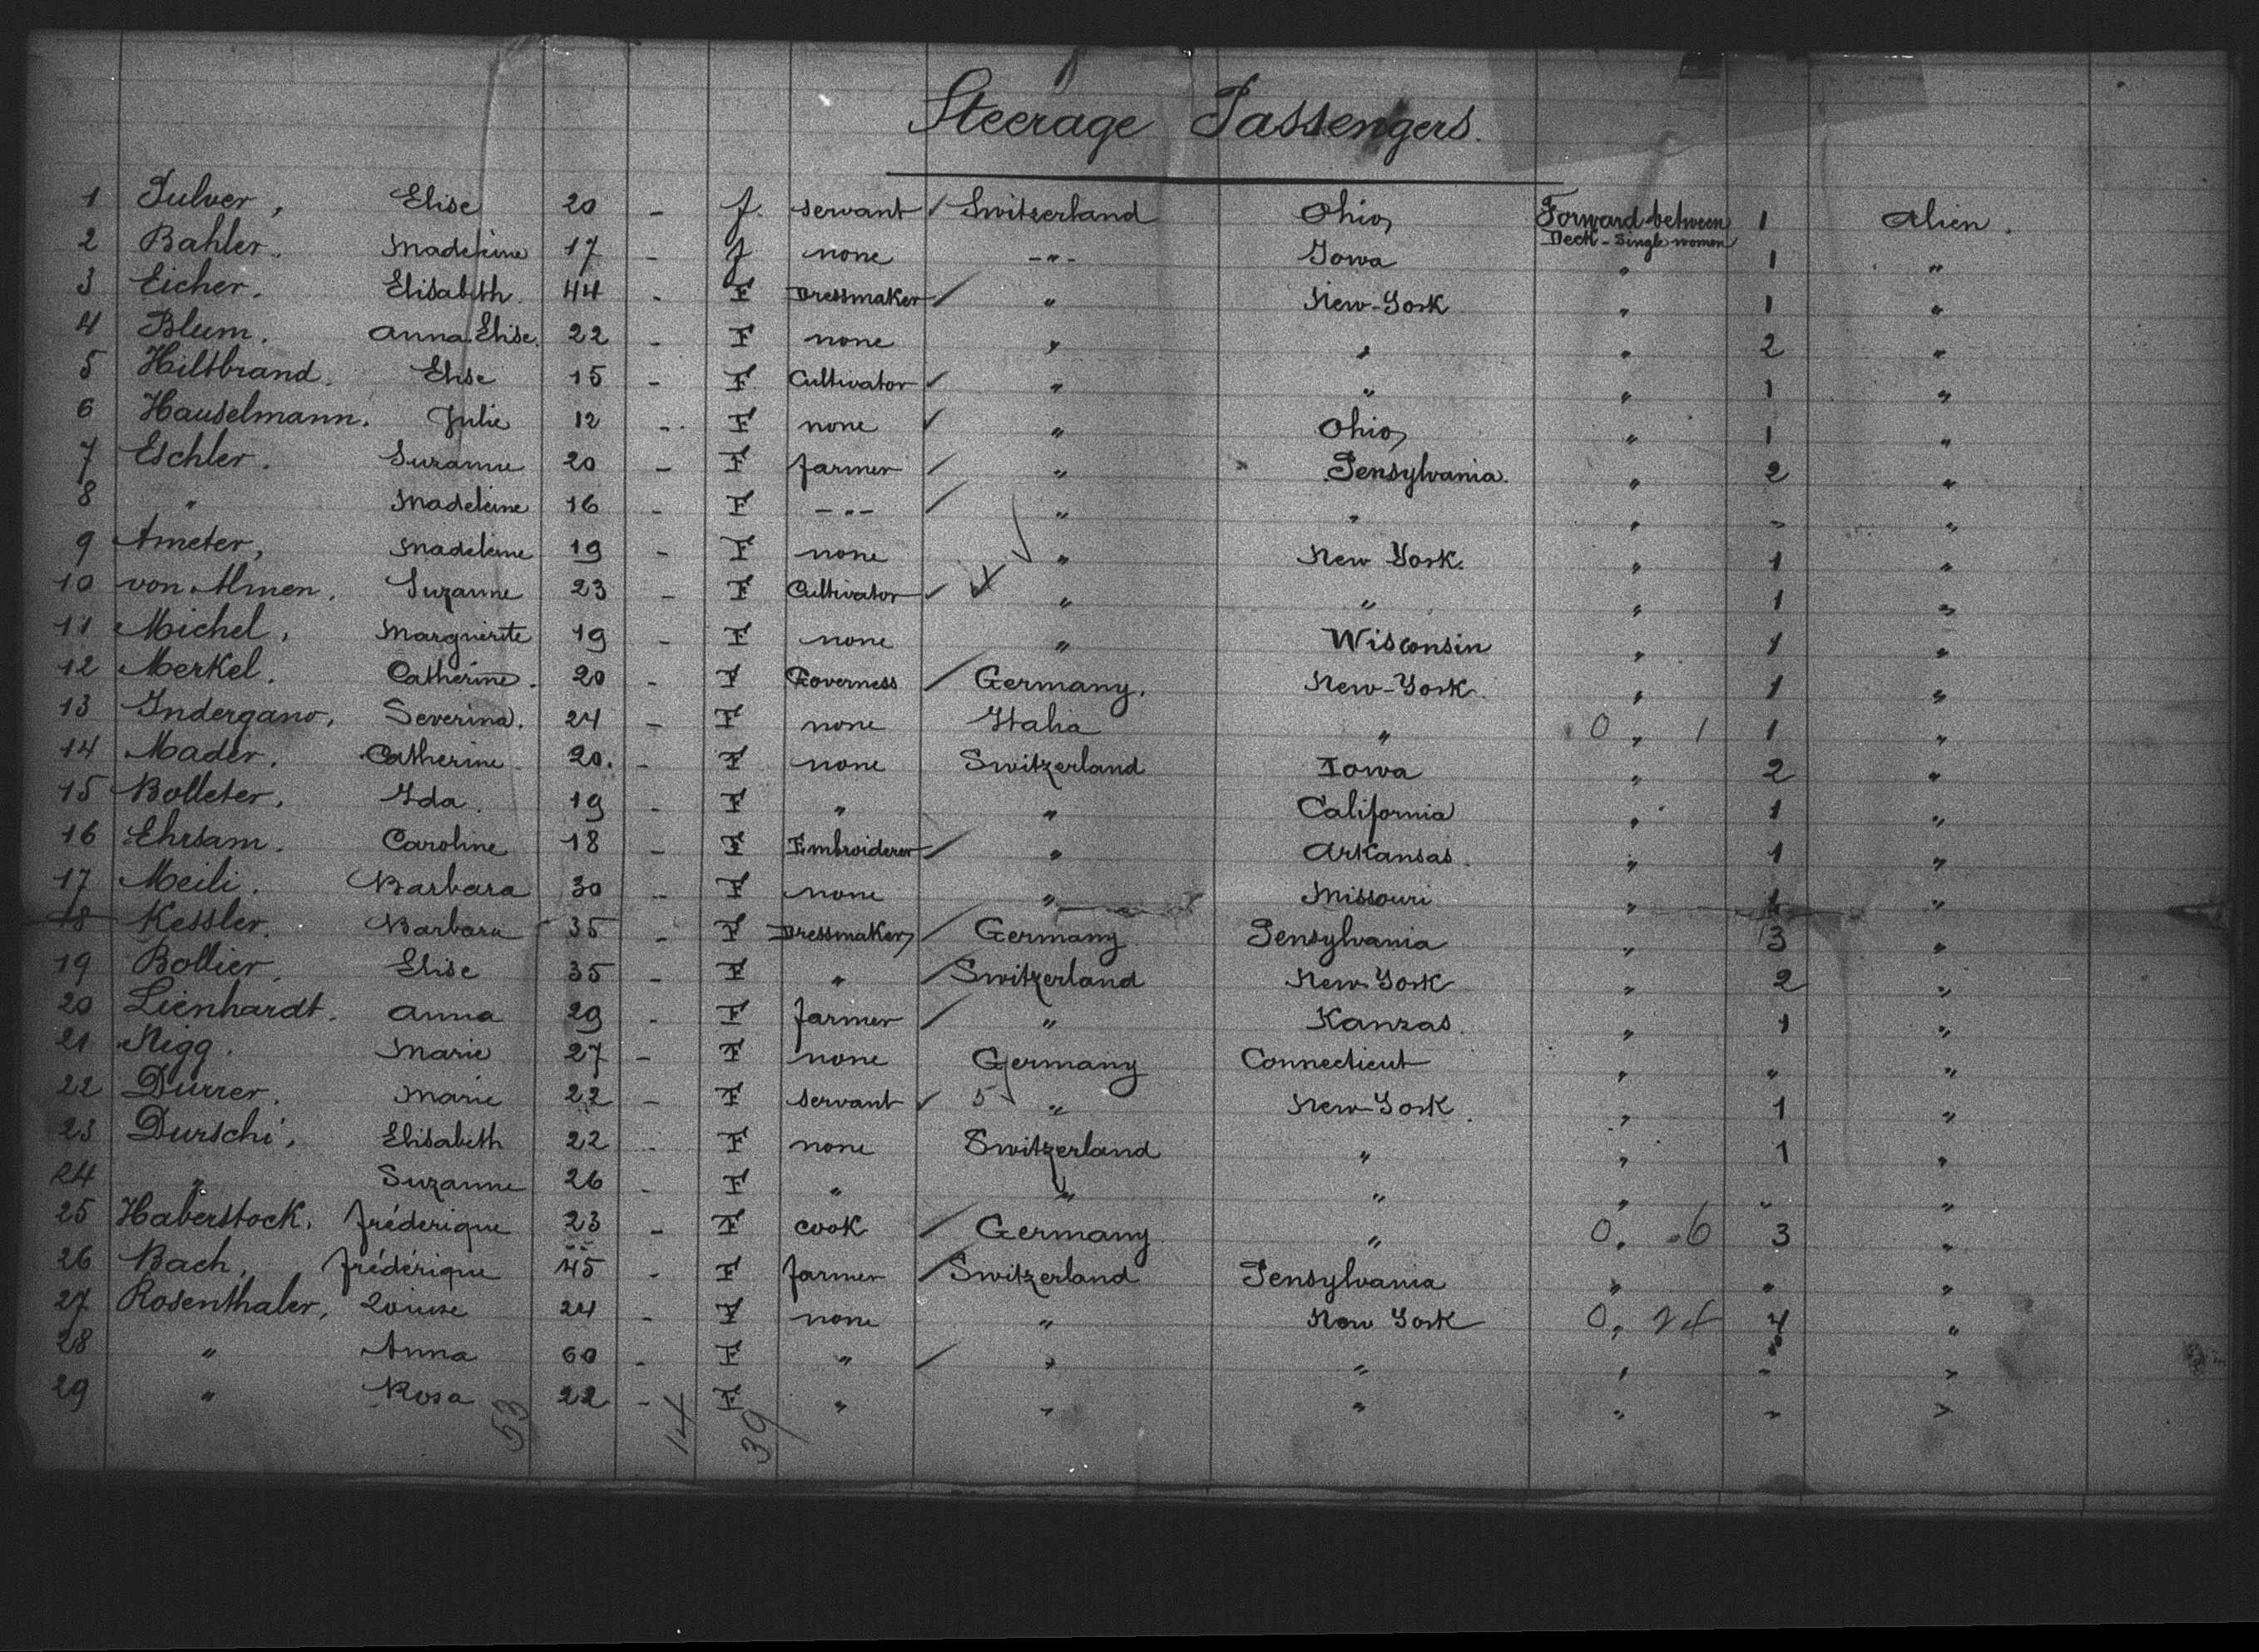 Steerage Passengers.
1 Pulver, Elise 20 - f. servant Switzerland Ohio Forward between Deck - Single women 1 Alien.
2 Bahler. Madeleine 17 - f none -"- Iowa " 1 "
3 Eicher. Elisabeth. 44 - F Dressmaker " New-York " 1 "
4 Blum. Anna Elise. 22 - F none " " " 2 "
5 Hiltbrand. Elise 15 - F Cultivator " " " 1 "
6 Hauselmann. Julie 12 - F none " Ohio " 1 "
7 Eschler. Suzanne 20 - F farmer " Pensylvania. " 2 "
8 " Madeleine 16 - F -"- " " " " "
9 Ameter, Madeleine 19 - F none " New York. " 1 "
10 von Almen. Suzanne 23 - F Cultivator " " " 1 "
11 Michel, Marguerite 19 - F none " Wisconsin " 1 "
12 Merkel. Catherine. 20 - F Governess Germany. New-York. " 1 "
13 Severina. 24 - F none Italia " 0 " 1 1 "
14 Mader. Catherine 20. - F none Switzerland Iowa " 2 "
15 Bolleter. Ida. 19 - F " " California " 1 "
16 Ehrsam. Caroline 18 - F Embroiderer " Arkansas. " 1 "
17 Meili. Barbara 30 - F none " Missouri " 1 "
18 Kessler. Barbara 35 - F Dressmaker Germany Pensylvania " 3 "
19 Bollier. Elise 35 - F " Switzerland New-York " 2 "
20 Lienhardt. Anna 29 - F farmer " Kanzas. " 1 "
21 Nigg. Marie 27 - F none Germany Connecticut " " "
22 Durrer. Marie 22 - F servant 5 " New-York. " 1 "
23 Durschi, Elisabeth 22 - F none Switzerland " " 1 "
24 " Suzanne 26 - F " " " " " "
25 Haberstock. frédérique 23 - F cook Germany " 0 " 6 3 "
26 Bach. frédérique 45 - F farmer Switzerland Pensylvania " " "
27 Rosenthaler, Louise 24 - F none " New York 0 " 24 4 "
28 " Anna 60 - F " " " " " "
29 " Rosa 22 - F " " " " " "
53 14 39